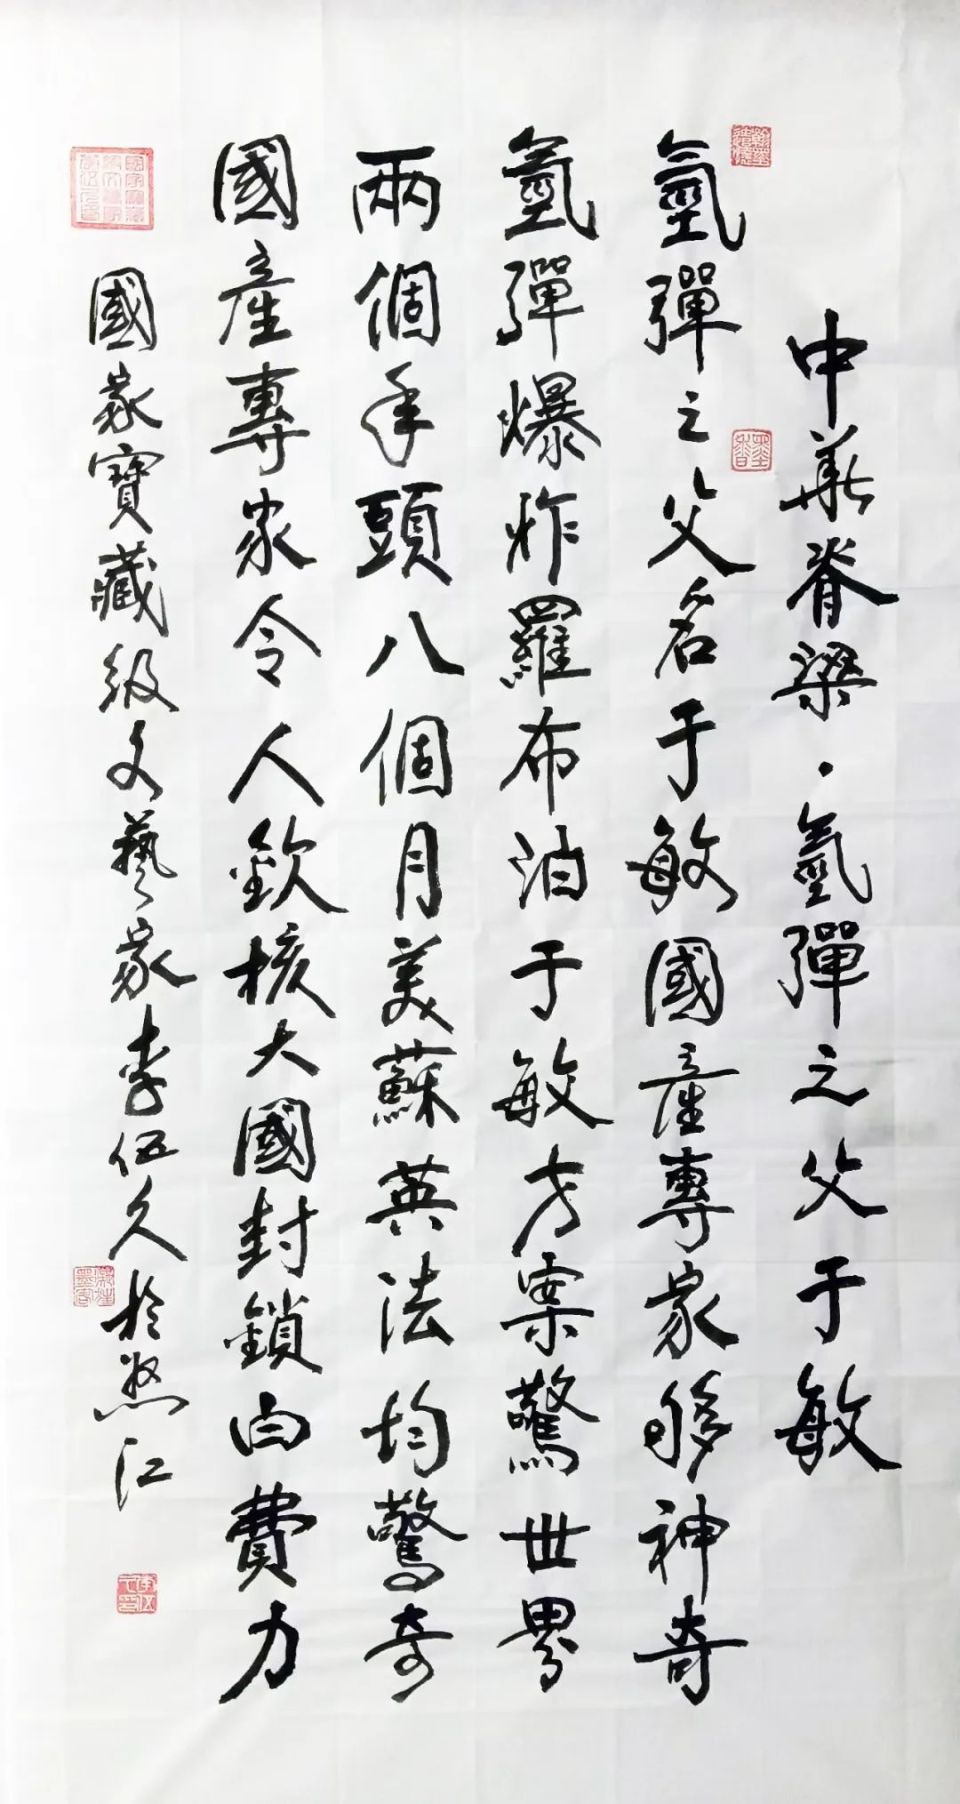 中華脊梁·氫彈之父于敏
氫彈之父名于敏國産專家够神奇
氫彈爆炸羅布泊于敏方案驚世界
兩個年頭八個月美蘇英法均驚奇
國産專家令人欽核大國封鎖白費力
國家寶藏級文藝家李伍久於怒江